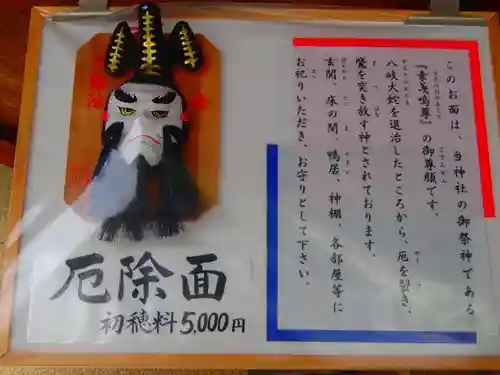 このお面は、当神社の御祭神である
『素戔嗚尊』の御尊顔です。
八岐大蛇を退治したところから、厄を祓き、
魔を突き放す神とされております。
玄関、床の間、鴨居、神棚、各部屋等に
お祀りいただき、お守りとして下さい。
厄除面
初穂料5,000円